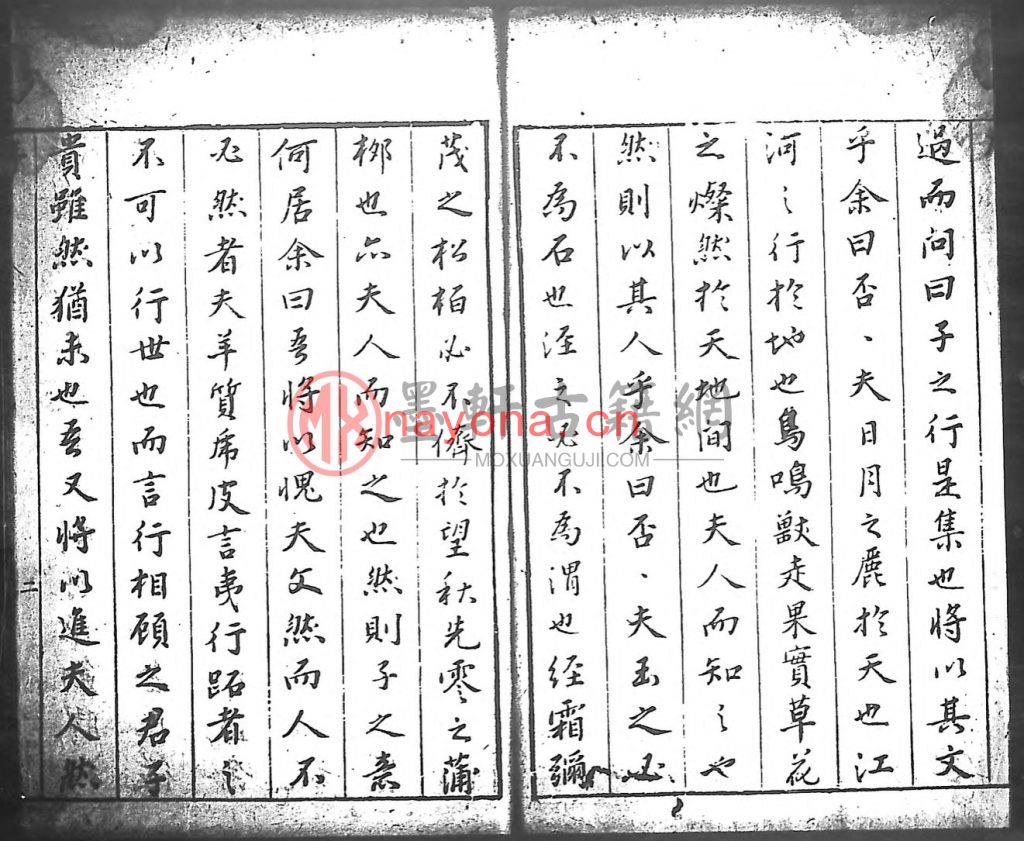 過而問曰子之行是集也將以其文
乎余曰否、夫日月之麗於天也江
河之行於地也鳥鳴獸走果實草花
之燦然於天地間也夫人而知之也
然則以其人乎余曰否、夫玉之必
不為石也涇之必不為渭也經霜彌
茂之松柏必不儕於望秋先零之蒲
栁也亦夫人而知之也然則子之意
何居余曰吾將以愧夫文然而人不
必然者夫羊質虎皮言夷行跖者之
不可以行世也而言行相顧之君子
貴雖然猶未也吾又將以進夫人然
二
墨軒古籍網
nayona.cn
MOXUANGUJI.COM
MX